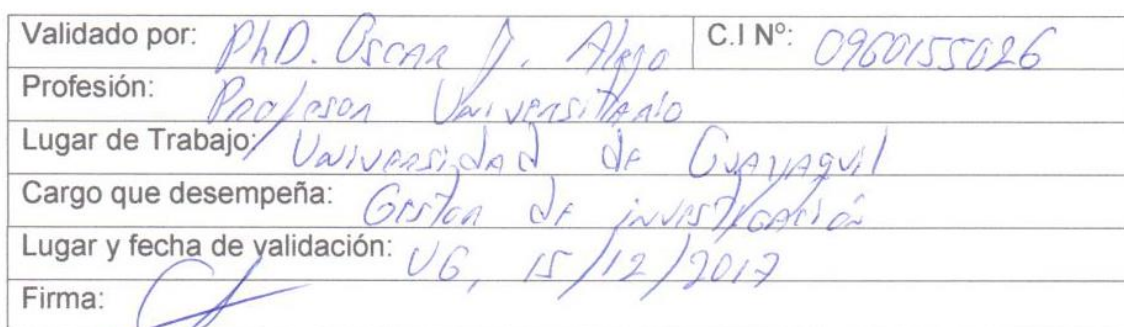 Validado por: PhD. Oscar J. Alejo C.I Nº: 0960155026
Profesión: Profesor Universitario
Lugar de Trabajo: Universidad de Guayaquil
Cargo que desempeña: Gestor de investigación
Lugar y fecha de validación: UG, 15/12/2017
Firma: